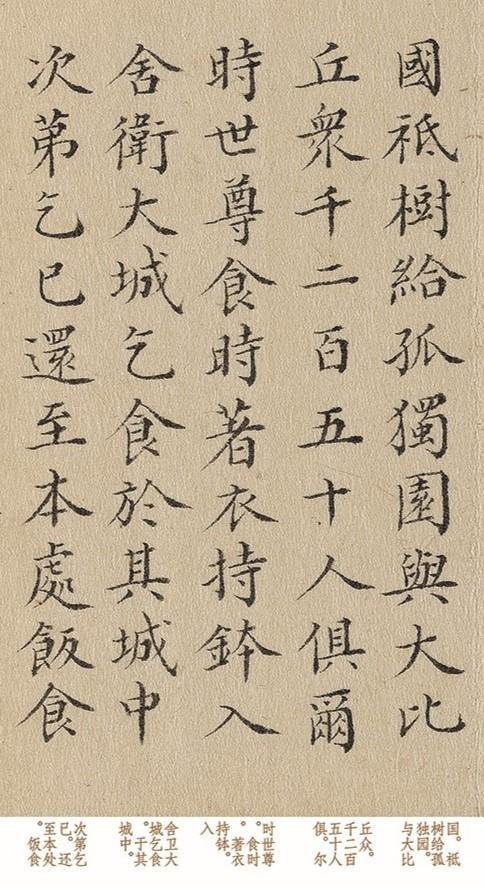 國祇樹給孤獨園與大比
丘衆千二百五十人俱爾
時世尊食時著衣持鉢入
舍衛大城乞食於其城中
次第乞已還至本處飯食
国。祇
树给孤
独园。
与大比
丘众。
千二百
五十人
俱。尔
时世尊
。食时
。著衣
持钵。
入
舍卫大
城乞食
。于其
城中。
次第乞
已。还
至本处
。饭食